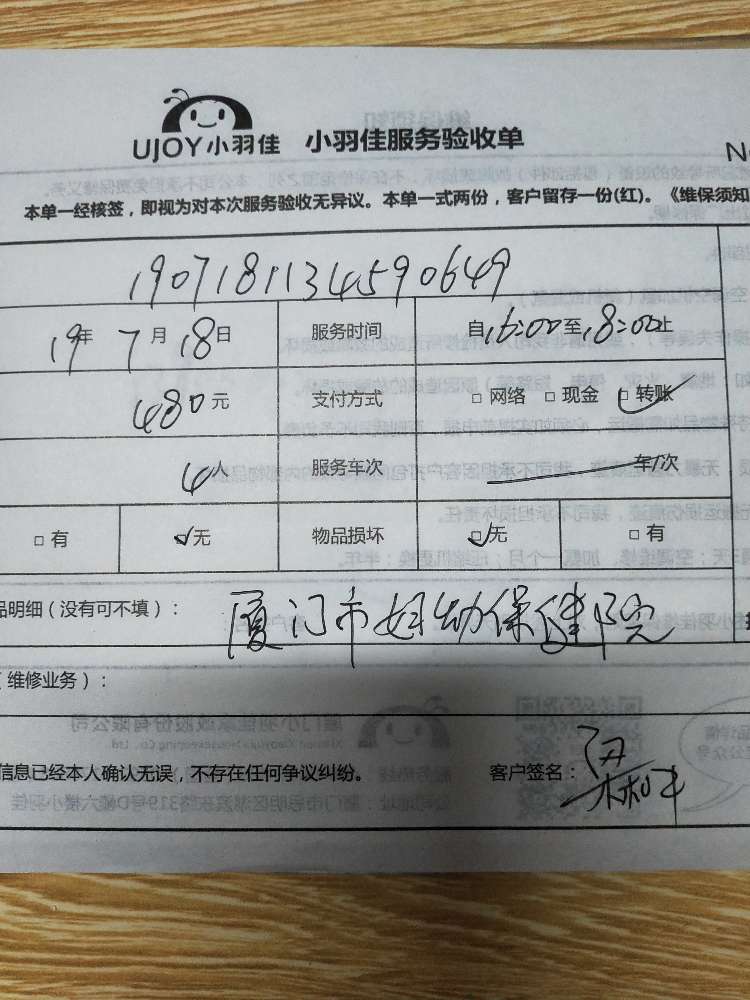 UJOY小羽佳 小羽佳服务验收单
N
本单一经核签，即视为对本次服务验收无异议。本单一式两份，客户留存一份(红)。《维保须知
1907181134590649
19年 7月 18日 服务时间 自16:00至18:00止
480元 支付方式 □ 网络 □ 现金 ☑ 转账
4人 服务车次 车/次
□ 有 ☑无 物品损坏 ☑无 □ 有
品明细（没有可不填）： 厦门市妇幼保健院
（维修业务）：
信息已经本人确认无误，不存在任何争议纠纷。 客户签名：